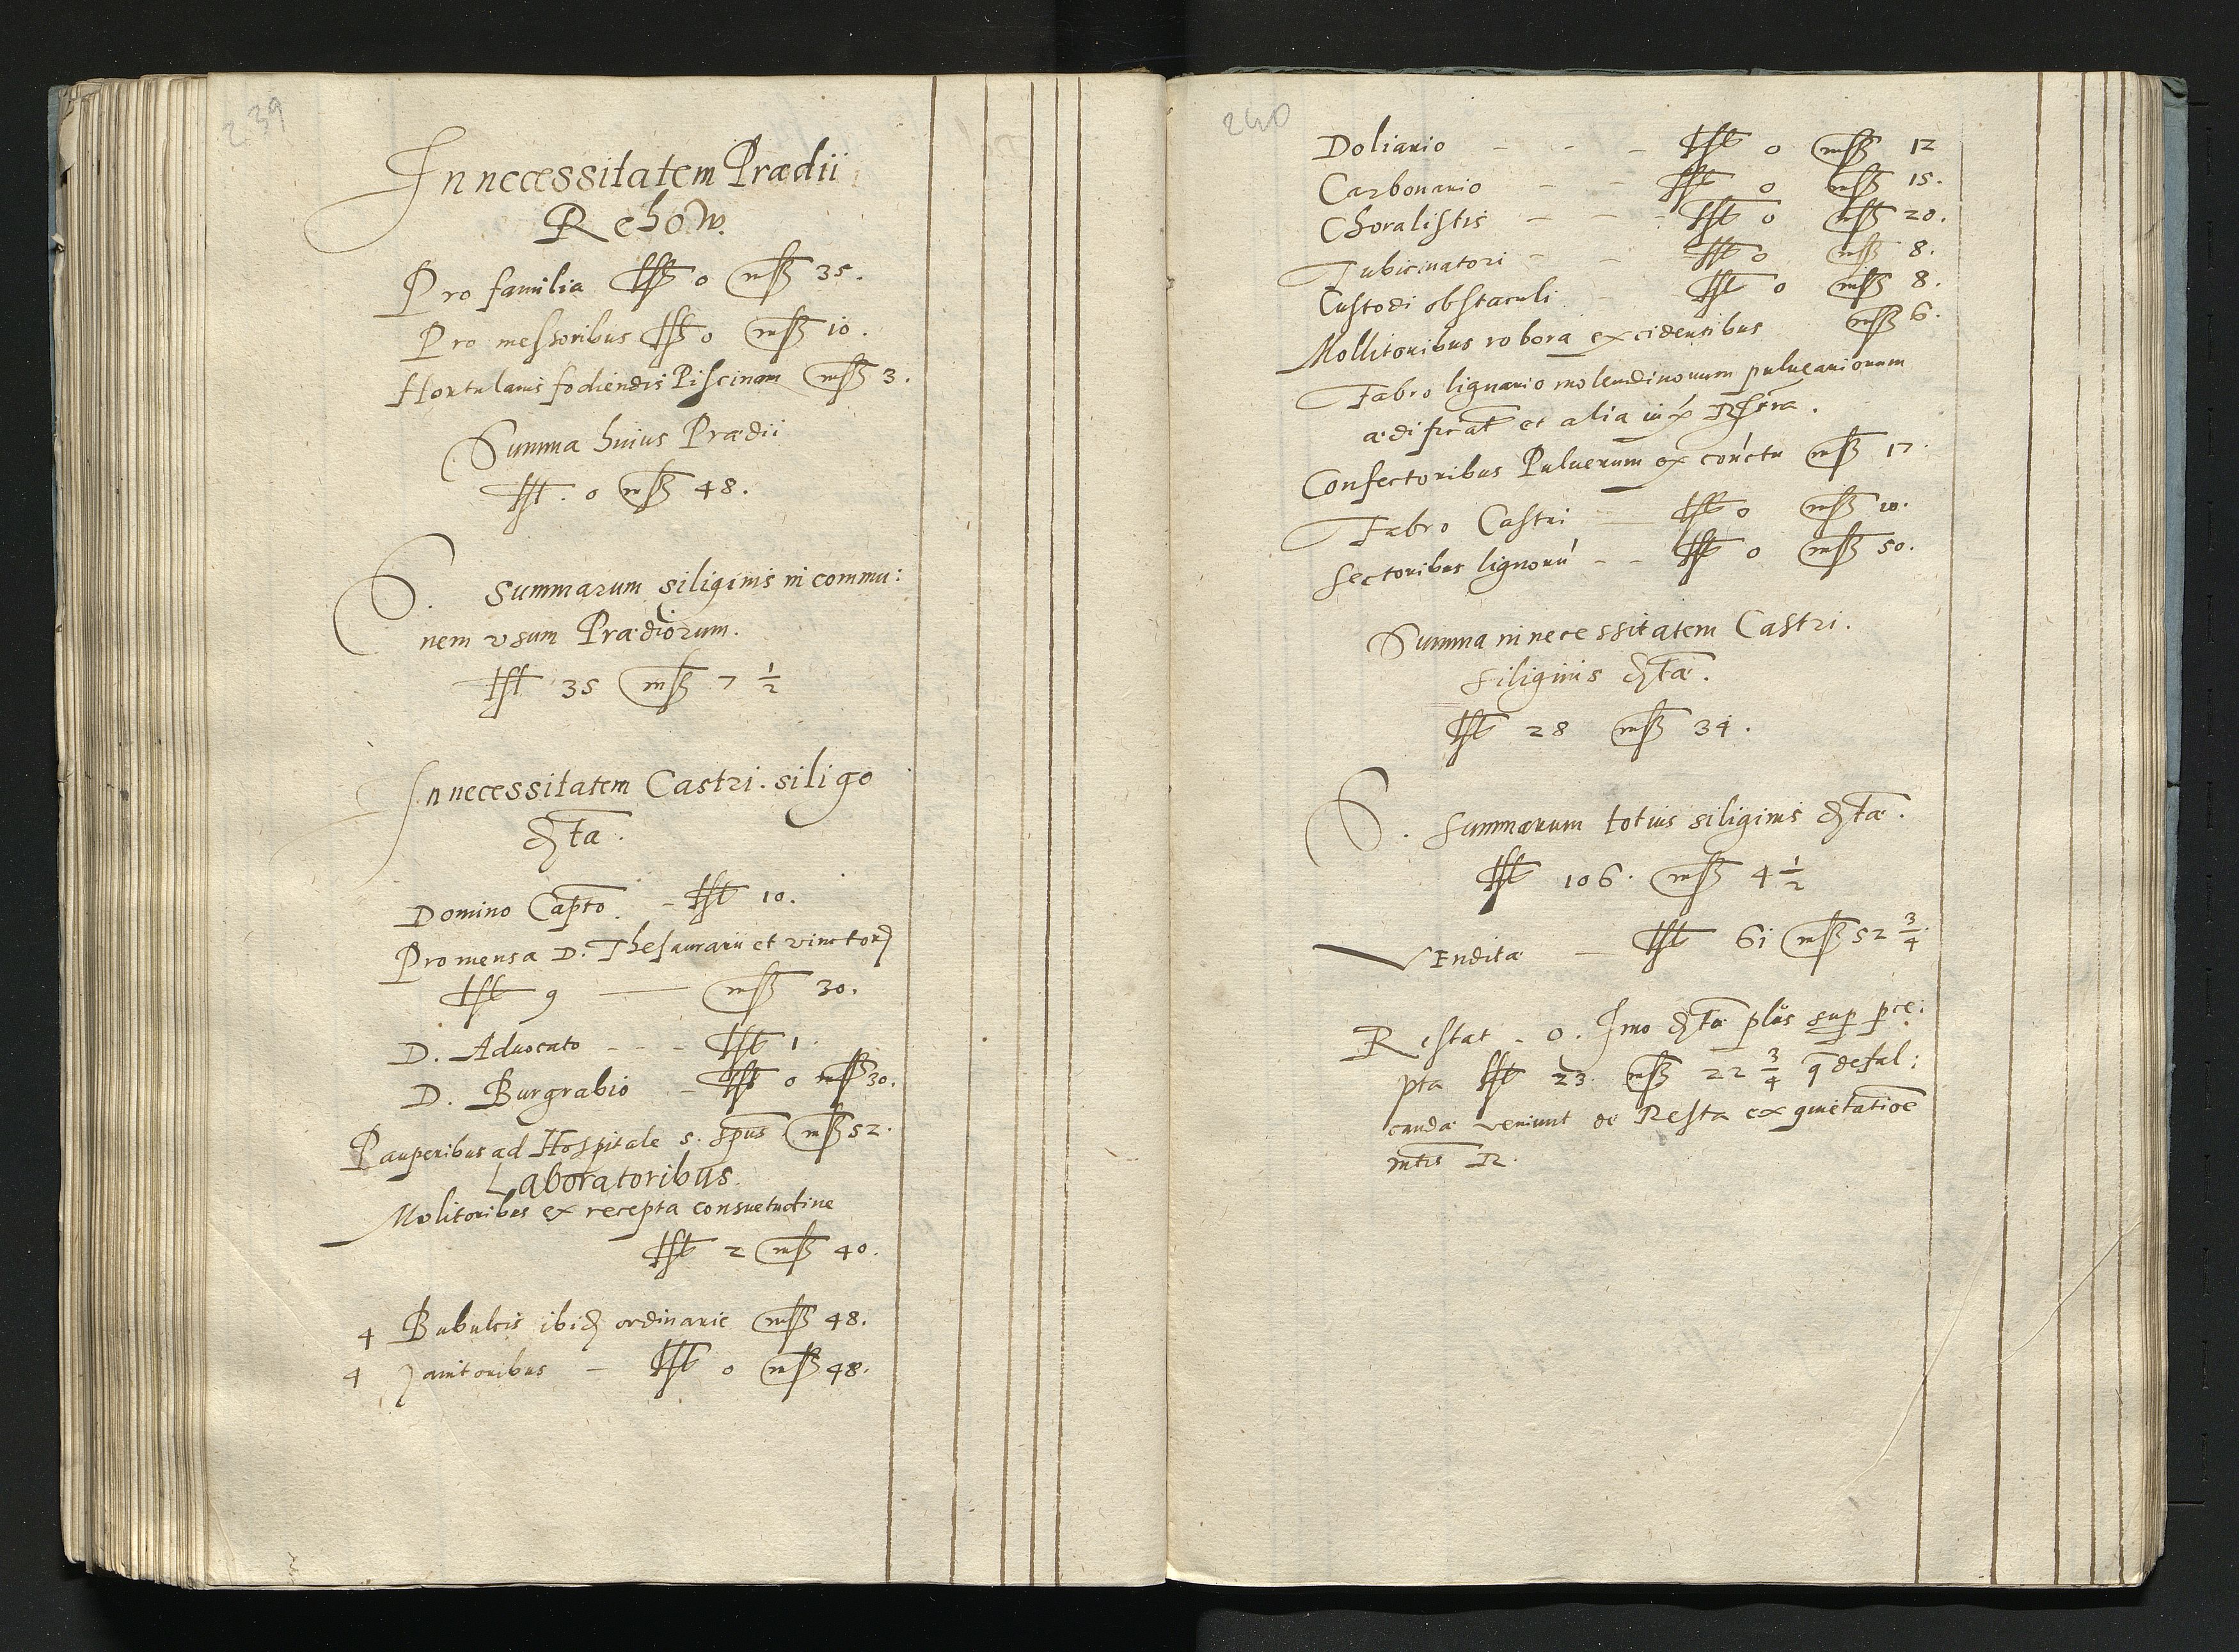 239
In necessitatem Prædii
Rehow.
Pro familia Lst 0 msz 35.
Pro messoribus Lst 0 msz 10.
Hortulanis fodiendis Piscinam msz 3.
Summa huius Prædii
Lst. 0 msz 48.
S. Summarum siliginis in commu:
nem vsum Prædiorum.
Lst 35 msz 7 1/2
In necessitatem Castri. siligo
dta.
Domino Capto. - Lst 10.
Pro mensa D. Thesaurarii et vinctor
Lst 9 — msz 30.
D. Aduocato - - - Lst 1.
D. Burgrabio - Lst 0 msz 30.
Pauperibus ad Hospitale s. spus msz 52.
Laboratoribus.
Molitoribus ex recepta consuetudine
Lst 2 msz 40.
4 Bubulcis ibid ordinarie msz 48.
4 Janitoribus - Lst 0 msz 48.
240
Doliario - - - Lst 0 msz 12
Carbonario - - Lst 0 msz 15.
Choralistis - - - Lst 0 msz 20.
Tubicinatori - - Lst 0 msz 8.
Custodi obstaculi - Lst 0 msz 8.
Mollitoribus robora excidentibus msz 6.
Fabro lignario molendinorum pulueariorum
ædificat et alia
Confectoribus Puluerum ex cónctu msz 17.
Fabro Castri — Lst 0 msz 10.
Sectoribus lignorú - - Lst 0 msz 50.
Summa in necessitatem Castri.
siliginis dtæ.
Lst 28 msz 34.
S. Summarum totius siliginis dtæ.
Lst 106. msz 4 1/2
Vendita — Lst 61 msz 52 3/4.
Restat - 0. Imo dta plus sup pce:
pta Lst 23. msz 22 3/4 q defal:
canda veniunt de Resta ex quietatioe
mtis R.